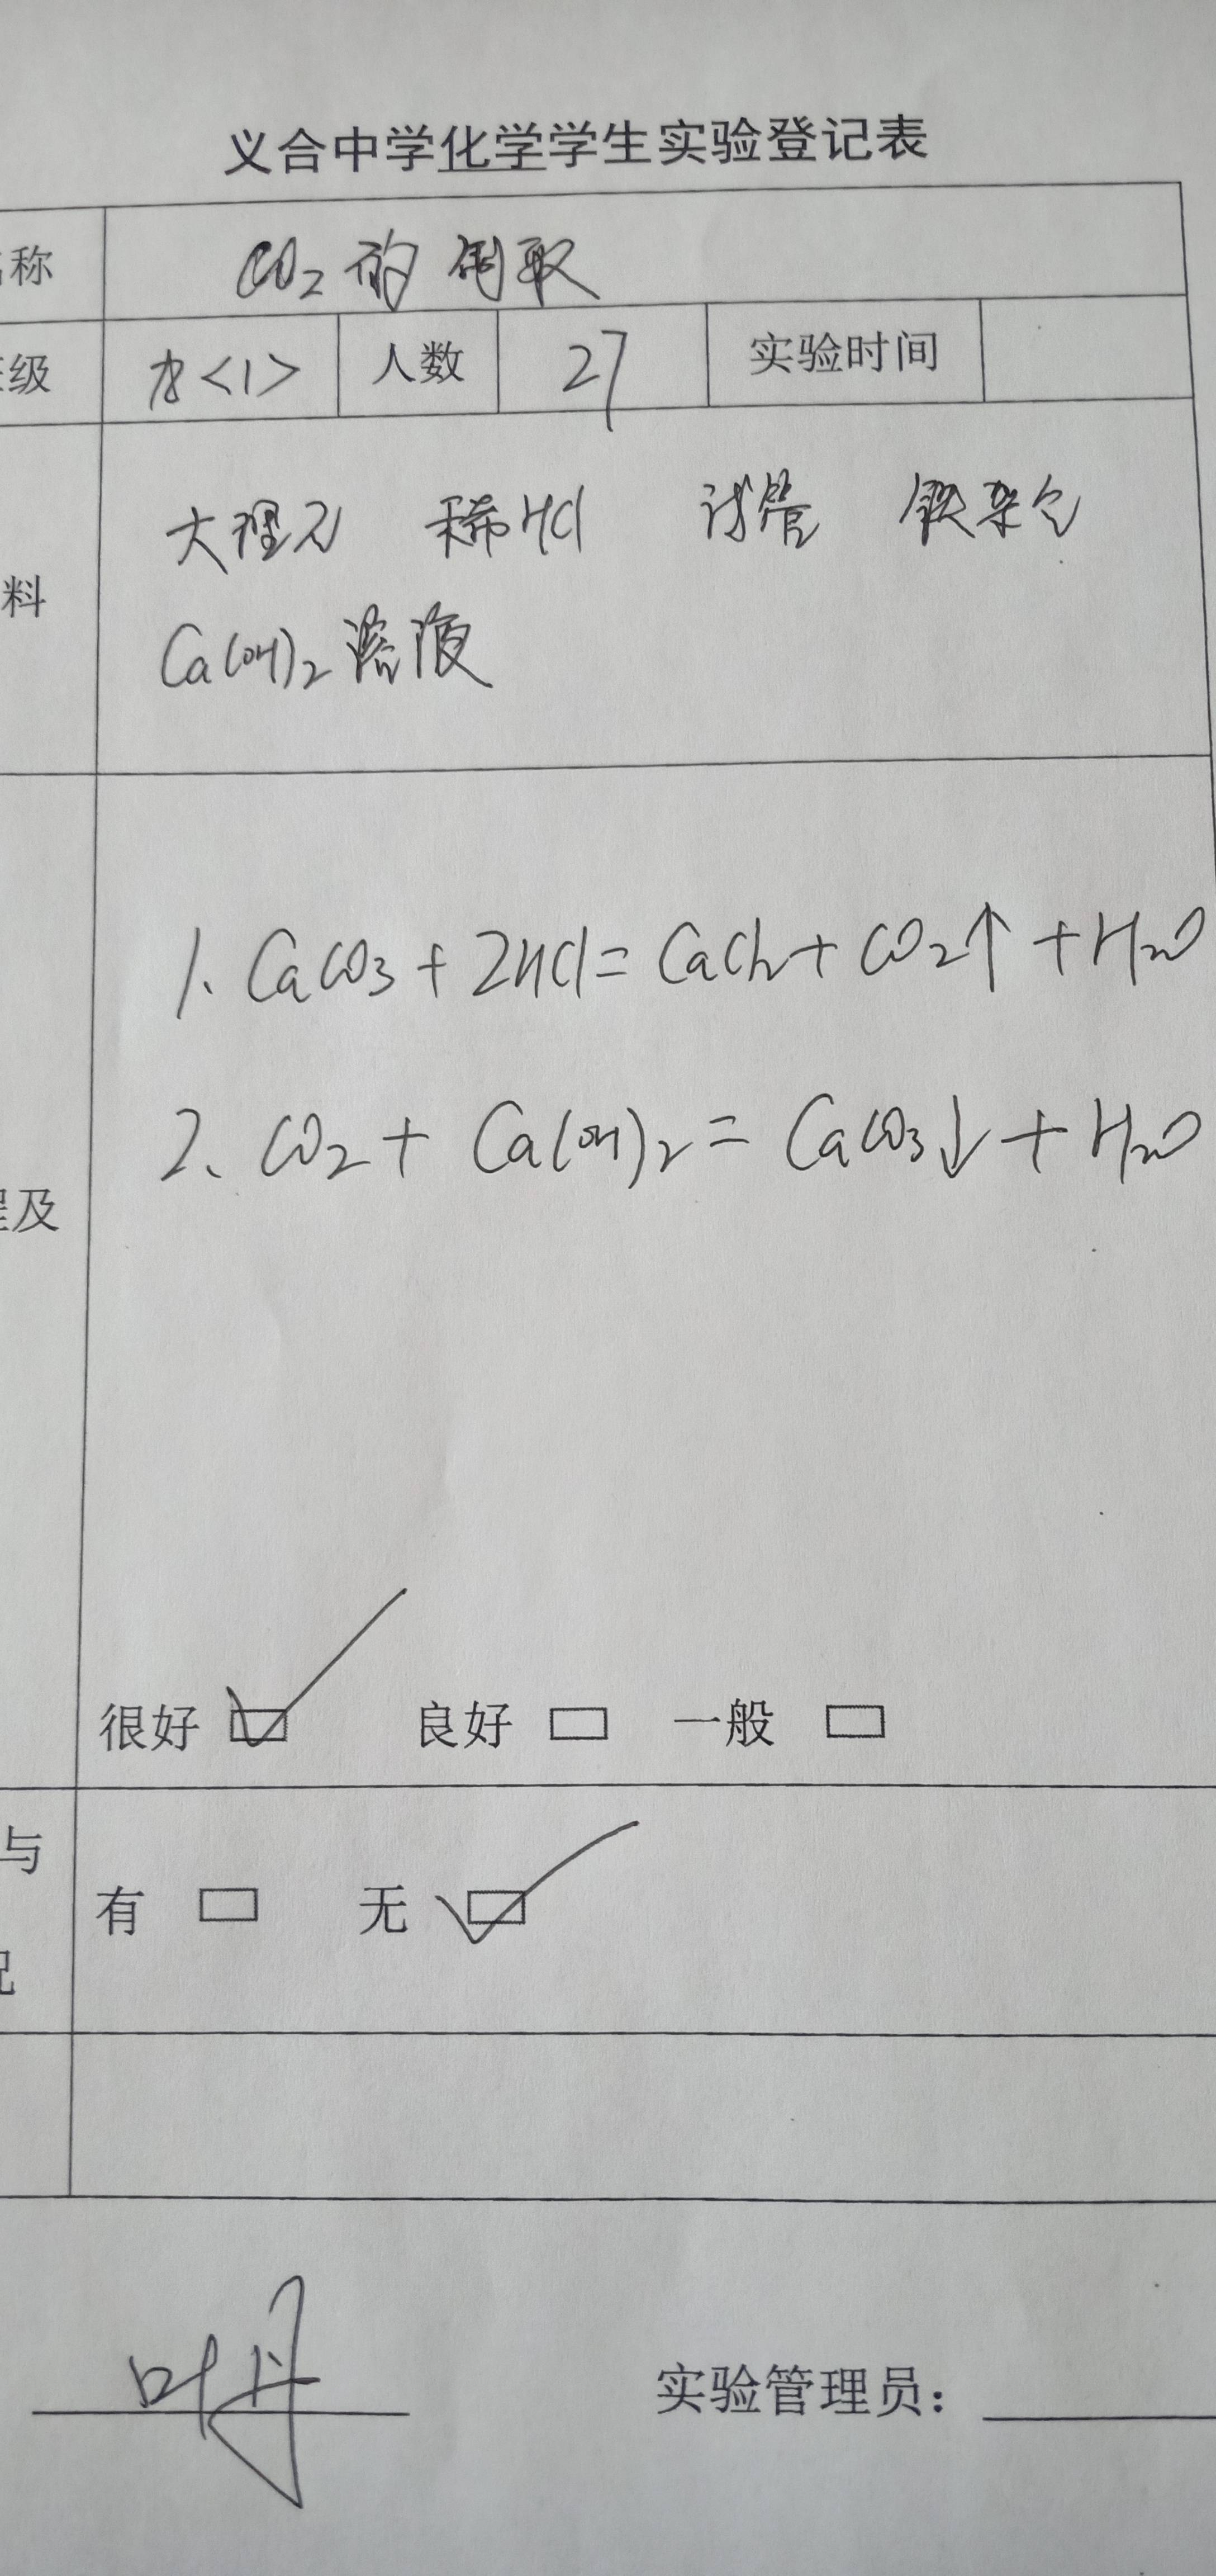 义合中学化学学生实验登记表
称 CO₂的制取
级 九<1> 人数 27 实验时间
大理石 稀HCl 试管 铁架台
料
Ca(OH)₂溶液
1. CaCO₃+2HCl=CaCl₂+CO₂↑+H₂O
2. CO₂+Ca(OH)₂=CaCO₃↓+H₂O
程及
很好 ☑ 良好 □ 一般 □
与
有 □ 无 ☑
况
叶丹 实验管理员：